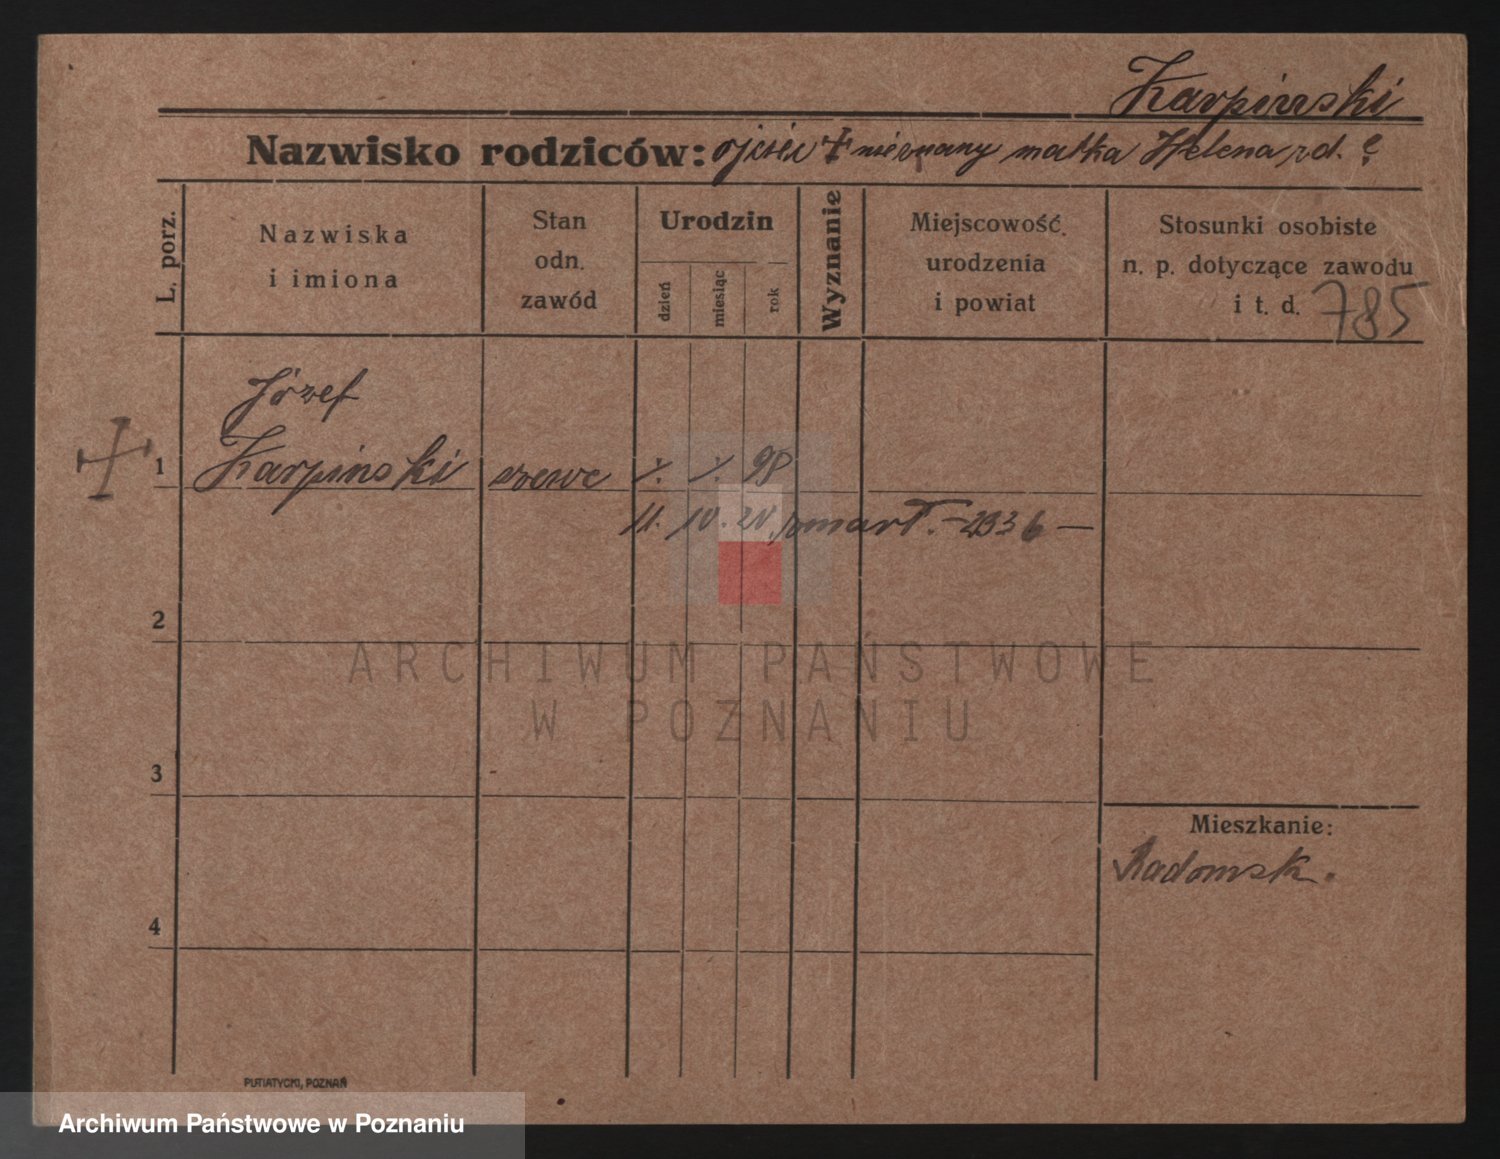 Karpinski
Nazwisko rodziców: ojciec + nieznany matka Helena, rd. ?
L. porz.
Nazwiska
i imiona
Stan
odn.
zawód
Urodzin
dzień
miesiąc
rok
Wyznanie
Miejscowość
urodzenia
i powiat
Stosunki osobiste
n. p. dotyczące zawodu
i t. d. 785
Józef
1 Karpinski szewc 98
11. 10. 20. zmarł. 2936
2
ARCHIWUM PAŃSTWOWE
W POZNANIU
3
Mieszkanie:
Radomsk.
4
PUTIATYCKI, POZNAŃ
Archiwum Państwowe w Poznaniu